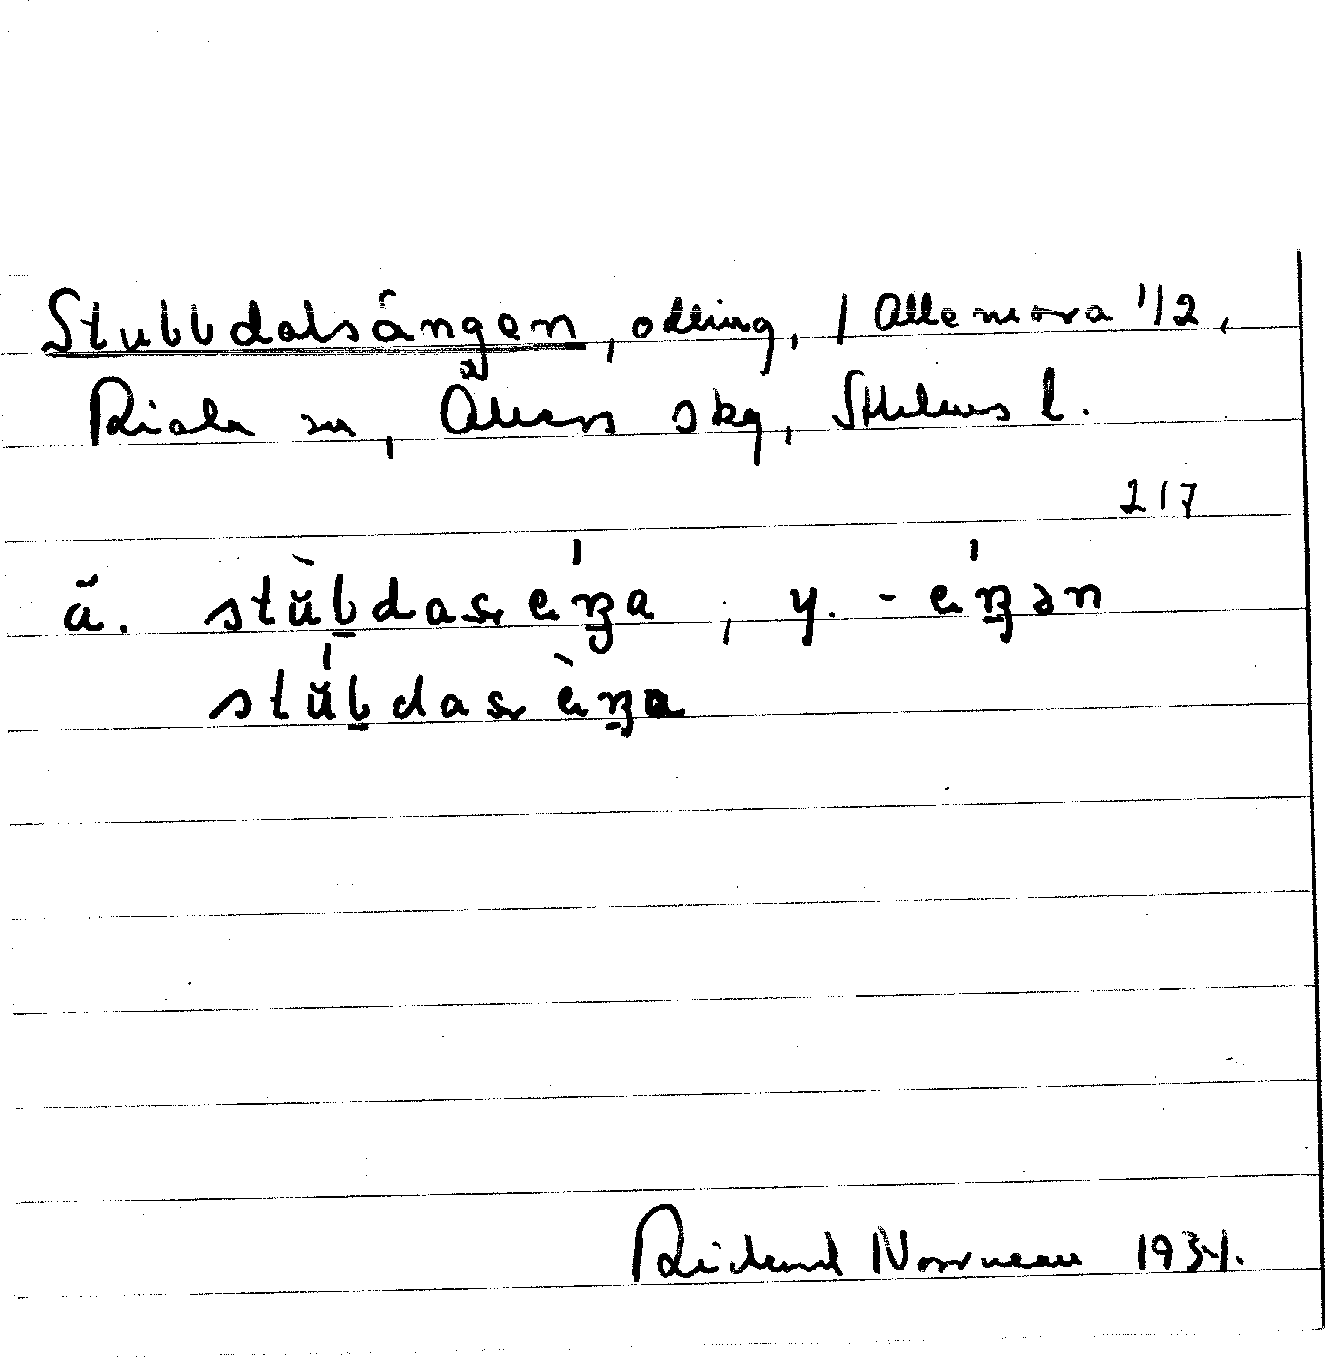 Stubbdalsängen, odling, / Allemora 1/2,
Riala sn, Åkers skg, Sthlms l.
217
ä. stŭ̀bdasɛŋa, y. -ɛŋən
stŭ́bdasɛ̀ŋa
Rickard Norrman 1934.